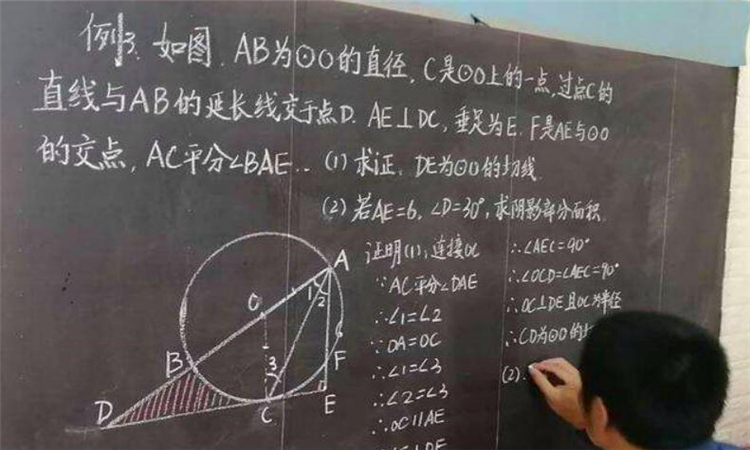 例3. 如图, AB为⊙O的直径, C是⊙O上的一点, 过点C的
直线与AB的延长线交于点D. AE⊥DC, 垂足为E. F是AE与⊙O
的交点, AC平分∠BAE..
(1) 求证, DE为⊙O的切线
(2) 若AE=6, ∠D=30°, 求阴影部分面积.
证明(1): 连接OC
∵AC平分∠DAE
∴∠1=∠2
∵OA=OC
∴∠1=∠3
∴∠2=∠3
∴OC∥AE
AE⊥DE
∴∠AEC=90°
∴∠OCD=∠AEC=90°
∴OC⊥DE且OC为半径
∴CD为⊙O的切
(2).
A
1 2
O
B
3
F
D
C
E